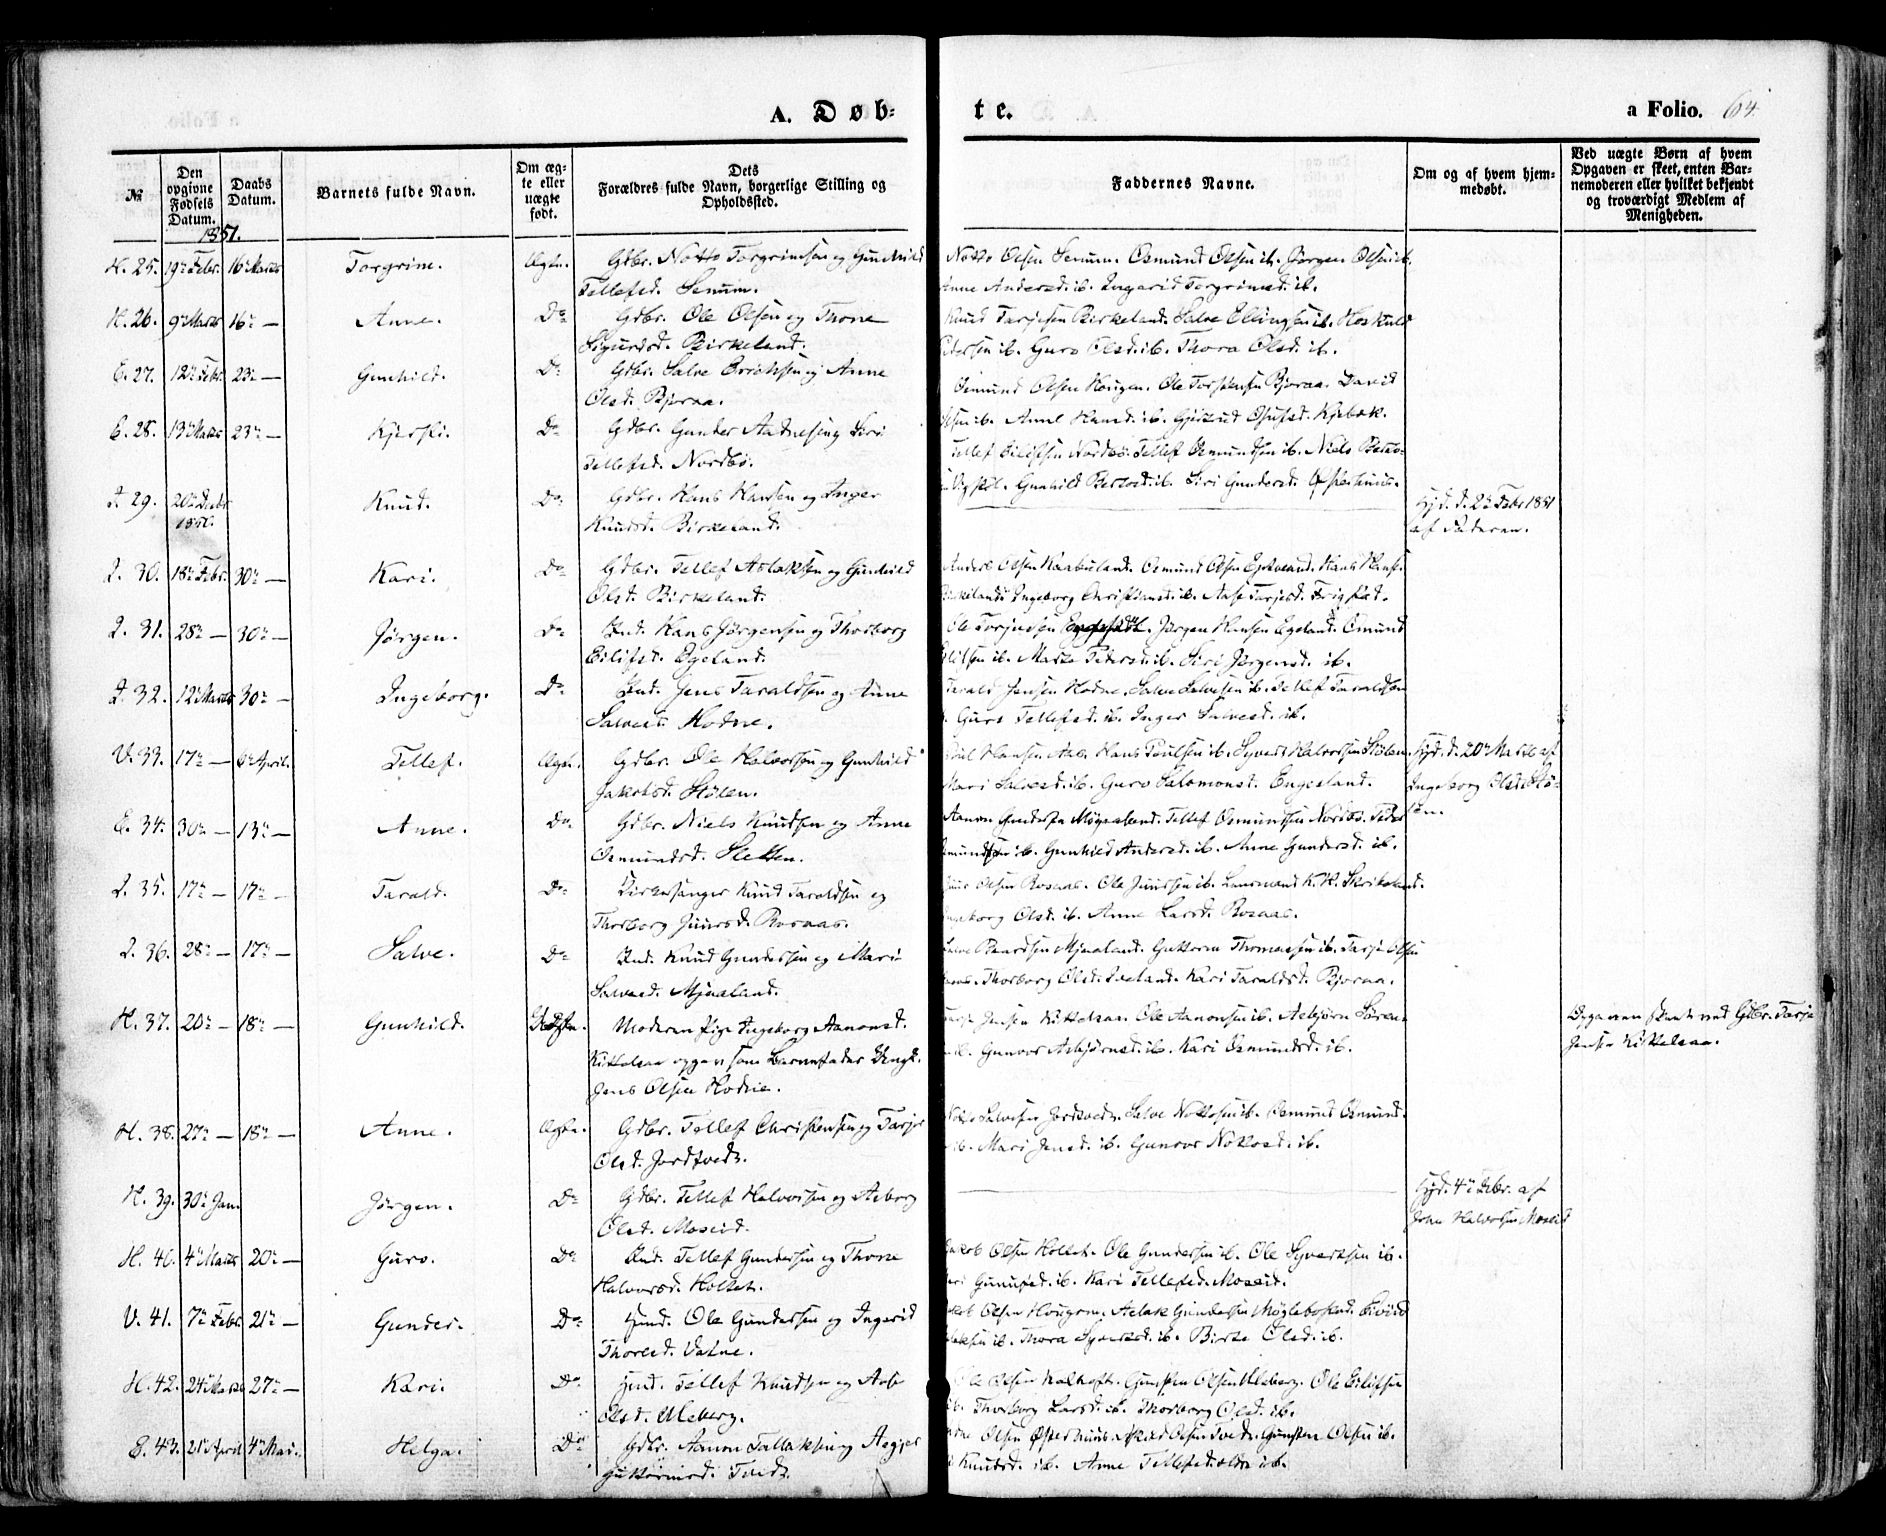 A. Døb-
te.
a Folio. 64
No
Den opgivne Fødsels Datum.
Daabs Datum.
Barnets fulde Navn.
Om ægte eller uægte født.
Dets Forældres fulde Navn, borgerlige Stilling og Opholdssted.
Faddernes Navne.
Om og af hvem hjemmedøbt.
Ved uægte Børn af hvem Opgaven er skeet, enten Barnemoderen eller hvilket bekjendt og troværdigt Medlem af Menigheden.
1851.
H. 25. 19de Febr. 16de Marts Torgrine. Ægte. Gdbr. Notto Torgrimsen og Gunhild
Tellefsd. Senum.
Notto Olsen Senum. Osmund Olsen ib. Jørgen Olsen ib.
Anne Andersd. ib. Ingerid Torgrimsd. ib.
H. 26. 9de Marts 16de — Anne. Do Gdbr. Ole Olsen og Thone
Sigurdsd. Birkeland.
Knud Tarjesen Birkeland. Salve Ellingsen ib. Hoskuld
Pedersen ib. Guro Olsd. ib. Thora Olsd. ib.
E. 27. 12te Febr. 23de — Gunhild. Do Gdbr. Salve Erichsen og Anne
Olsd. Bjoraa.
Osmund Olsen Hougen. Ole Bjoraa. David
ib. Anne Hansd. ib. Gjertrud Kjebæk.
E. 28. 13de Marts 23de — Kjersti. Do Gdbr. Gunder Aadnesen og Siri
Tellefsd. Nordbø.
Tellef Eilifsen Nordbø. Tellef Osmundsen ib. Niels
Gunhild ib. Siri Gundersd.
I. 29. 20de Decbr 1850. Knud. Do Gdbr. Hans Hansen og Inger
Knudsd. Birkeland.
Hjd. d. 2de Febr 1851
af Faderen.
I. 30. 18de Febr. 30te — Kari. Do Gdbr. Tellef Aslaksen og Gunhild
Olsd. Birkeland.
Anders Olsen Osmund Olsen Hans Hans.
Birkeland. Ingeborg Christiansd. ib. Aase Tarjesd. Frigstad.
I. 31. 28de — 30te — Jørgen. Do Ind. Hans Jørgensen og Thorborg
Eilifsd. Egeland.
Ole Jørgen Hansen Egeland. Osmund
Eilifsen ib. Marte Pedersd. ib. Siri Jørgensd. ib.
I. 32. 12te Marts 30te — Ingeborg. Do Ind. Jens Taraldsen og Anne
Salvesd. Hodne.
Tarald Jensen Hodne. Salve Salvesen ib. Tellef Taraldsen
Guro Tellefsd. ib. Inger Salvesd. ib.
V. 33. 17de — 6te April. Tellef. Ægte. Gdbr. Ole Halvorsen og Gunhild
Jakobsd. Stølen.
Poul Hansen Aas. Hans Poulsen ib. Syvert Halvorsen Stølen.
Mari Salvesd. ib. Guro Salomonsd. Engesland.
Hjd. d. 20de Marts af
Ingeborg Olsd. Stø-
len.
E. 34. 30te — 13de — Anne. Do Gdbr. Niels Knudsen og Anne
Osmundsd. Sletten.
Aanon Gundersen Tellef Osmundsen Nordbø. Peder
Osmundsen ib. Gunhild Andersd. ib. Anne Gundersd. ib.
I. 35. 17de — 17de — Tarald. Do Kirkesanger Knud Taraldsen og
Thorborg Juursd. Rosaas.
Juur Olsen Rosaas. Ole Juursen ib. Lensmand K. K. Skribeland.
Ingeborg Olsd. ib. Anne Larsd. Rosaas.
I. 36. 28de — 17de — Salve. Do Ind. Knud Gundersen og Mari
Salvesd. Mjaaland.
Salve Mjaaland. Guttorm Thomassen ib. Tarje Olsen
Thorborg Olsd. Iveland. Kari Taraldsd. Bjoraa.
H. 37. 20de — 18de — Gunhild. Uægte. Moderen pige Ingeborg Aanonsd.
Kittelsaa opgav som Barnefader Ungk.
Jens Olsen Hodne.
Tarje Jensen Kittelsaa. Ole Aanonsen ib. Asbjørn Søren-
ib. Gunvor Asbjørnsd. ib. Kari Osmundsd. ib.
Opgaven skeet ved Gdbr. Tarje
Jensen Kittelsaa.
H. 38. 27de — 18de — Anne. Ægte. Gdbr. Tellef Christensen og Tarje
Olsd. Jordtvedt.
Notto Salvesen Jordtvedt. Salve Nottosen ib. Osmund Osmund-
ib. Mari Jensd. ib. Gunvor Nottosd. ib.
H. 39. 30te Jan. Jørgen. Do Gdbr. Tellef Halvorsen og Asborg
Olsd. Moseid.
Hjd. 4de Febr. af
John Halvorsen Moseid
H. 40. 4de Marts 20de — Guro. Do Ind. Tellef Gundersen og Thone
Halvorsd. Holtet.
Jakob Olsen Holtet. Ole Gundersen ib. Ole Syvertsen ib.
ib. Kari Tellefsd. Moseid.
V. 41. 7de Febr. 21de — Gunder. Do Huusd. Ole Gundersen og Ingerid
Thoresd. Vatne.
Jakob Olsen Hougen. Aslak Gundersen
ib. Thora Syvertsd. ib. Birte Olsd. ib.
H. 42. 24de Marts 27de — Kari. Do Huusd. Tellef Knudsen og Aase
Olsd. Uleberg.
Ole Olsen Gunsten Olsen Uleberg. Ole Eilifsen
ib. Thorborg Larsd. ib. Thorborg Olsd. ib.
E. 43. 21de April 4de Mai. Helga. Do Gdbr. Aanon Tellaksen og Aagje
Guttormsd. Tvedt.
Olsen Østerhuus. Olsen Tvedt. Gunsten Olsen ib.
Knudsd. ib. Anne Tellefsd. ib.